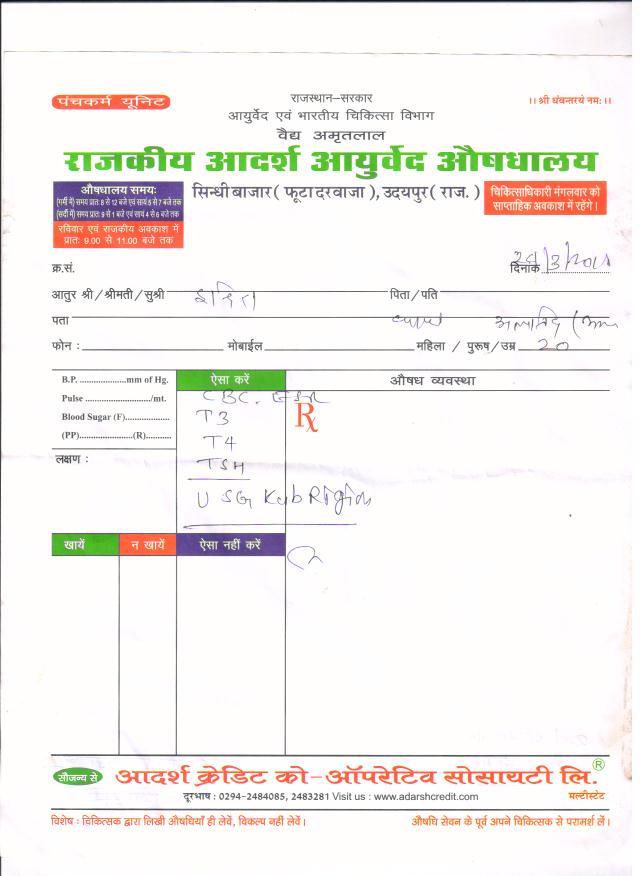 पंचकर्म यूनिट
राजस्थान–सरकार
।। श्री धंवन्तरये नमः ।।
आयुर्वेद एवं भारतीय चिकित्सा विभाग
वैद्य अमृतलाल
राजकीय आदर्श आयुर्वेद औषधालय
औषधालय समयः
(गर्मी में) समय प्रातः 8 से 12 बजे एवं सायं 5 से 7 बजे तक
(सर्दी में) समय प्रातः 9 से 1 बजे एवं सायं 4 से 6 बजे तक
रविवार एवं राजकीय अवकाश में
प्रातः 9.00 से 11.00 बजे तक
सिन्धी बाजार ( फूटा दरवाजा ), उदयपुर ( राज. )
चिकित्साधिकारी मंगलवार को
साप्ताहिक अवकाश में रहेंगे।
क्र.सं.
दिनांक
आतुर श्री/श्रीमती/सुश्री
पिता/पति
पता
फोन : मोबाईल महिला / पुरूष/उम्र 20
B.P. mm of Hg.
Pulse /mt.
Blood Sugar (F)
(PP) (R)
लक्षण :
ऐसा करें
CBC. ESR
T3
T4
TSH
USG Kub Rigion
औषध व्यवस्था
Rx
खायें
न खायें
ऐसा नहीं करें
सौजन्य से
आदर्श क्रेडिट को-ऑपरेटिव सोसायटी लि.®
दूरभाष : 0294-2484085, 2483281 Visit us : www.adarshcredit.com
मल्टीस्टेट
विशेष : चिकित्सक द्वारा लिखी औषधियाँ ही लेवें, विकल्प नहीं लेवें।
औषधि सेवन के पूर्व अपने चिकित्सक से परामर्श लें।